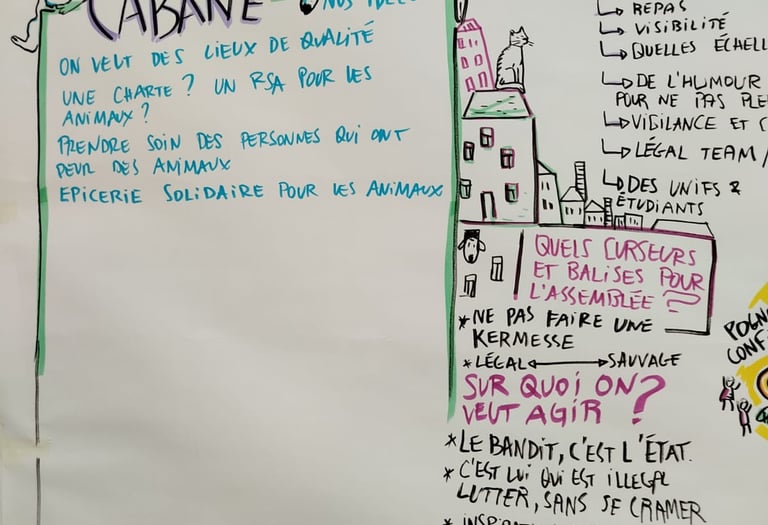 CABANE
NOS IDÉES
ON VEUT DES LIEUX DE QUALITÉ
UNE CHARTE ? UN RSA POUR LES
ANIMAUX ?
PRENDRE SOIN DES PERSONNES QUI ONT
PEUR DES ANIMAUX
EPICERIE SOLIDAIRE POUR LES ANIMAUX
REPAS
VISIBILITÉ
QUELLES
DE L'HUMOUR
POUR NE PAS
VIGILANCE ET
LÉGAL TEAM /
DES UNIFS &
ÉTUDIANTS
QUELS CURSEURS
ET BALISES POUR
L'ASSEMBLÉE ?
* NE PAS FAIRE UNE
KERMESSE
* LÉGAL ↔ SAUVAGE
SUR QUOI ON
VEUT AGIR ?
* LE BANDIT, C'EST L'ÉTAT.
* C'EST LUI QUI EST ILLEGAL
LUTTER, SANS SE CRAMER